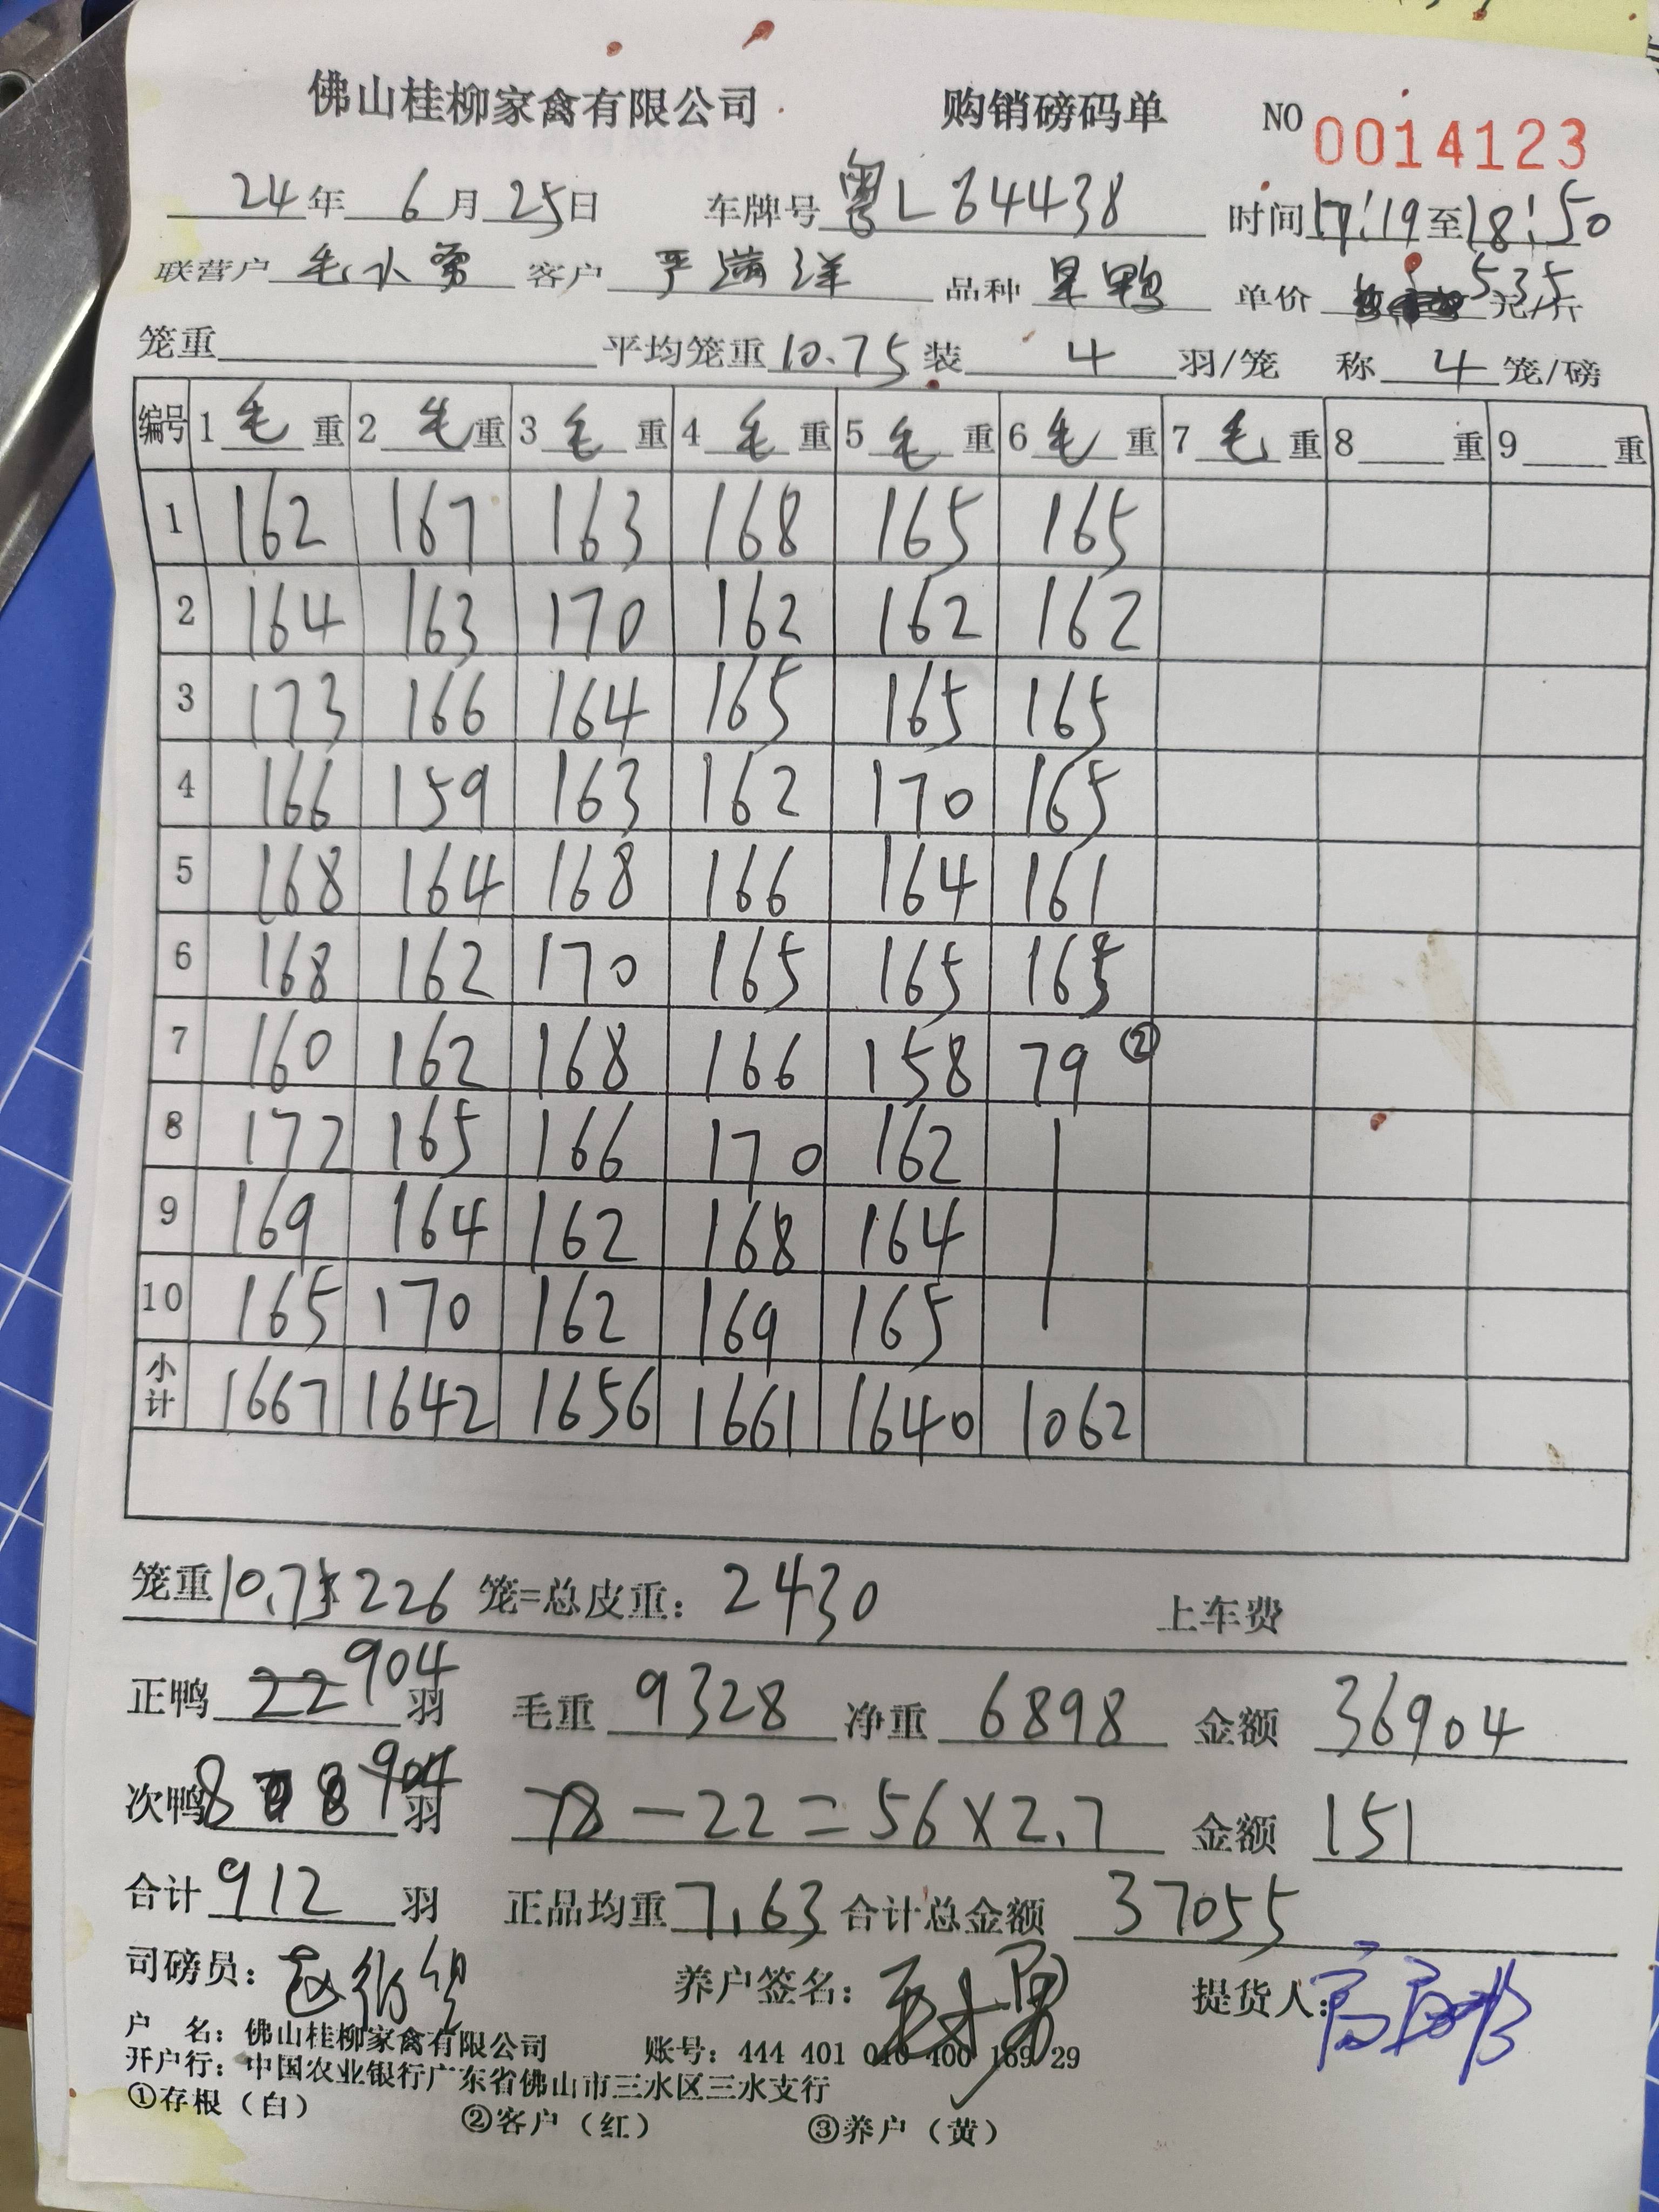 佛山桂柳家禽有限公司 购销磅码单 NO 0014123
24年 6月25日 车牌号 粤L64438 时间 17:19至18:50
联营户 毛水勇 客户 严满洋 品种 单价 5.35 元/斤
笼重 平均笼重 10.75 装 4 羽/笼 称 4 笼/磅
编号 1 毛 重 2 毛 重 3 毛 重 4 毛 重 5 毛 重 6 毛 重 7 毛 重 8 重 9 重
1 162 167 163 168 165 165
2 164 163 170 162 162 162
3 173 166 164 165 165 165
4 166 159 163 162 170 165
5 168 164 168 166 164 161
6 168 162 170 165 165 165
7 160 162 168 166 158 79 ②
8 172 165 166 170 162
9 169 164 162 168 164
10 165 170 162 169 165
小计 1667 1642 1656 1661 1640 1062
笼重 10.75 226 笼=总皮重: 2430 上车费
正鸭 22 904 羽 毛重 9328 净重 6898 金额 36904
次鸭 8 904 羽 78-22=56×2.7 金额 151
合计 912 羽 正品均重 7.63 合计总金额 37055
司磅员: 养户签名: 提货人:
户 名: 佛山桂柳家禽有限公司 账号: 444 401 040 400 169 29
开户行: 中国农业银行广东省佛山市三水区三水支行
①存根(白) ②客户(红) ③养户(黄)